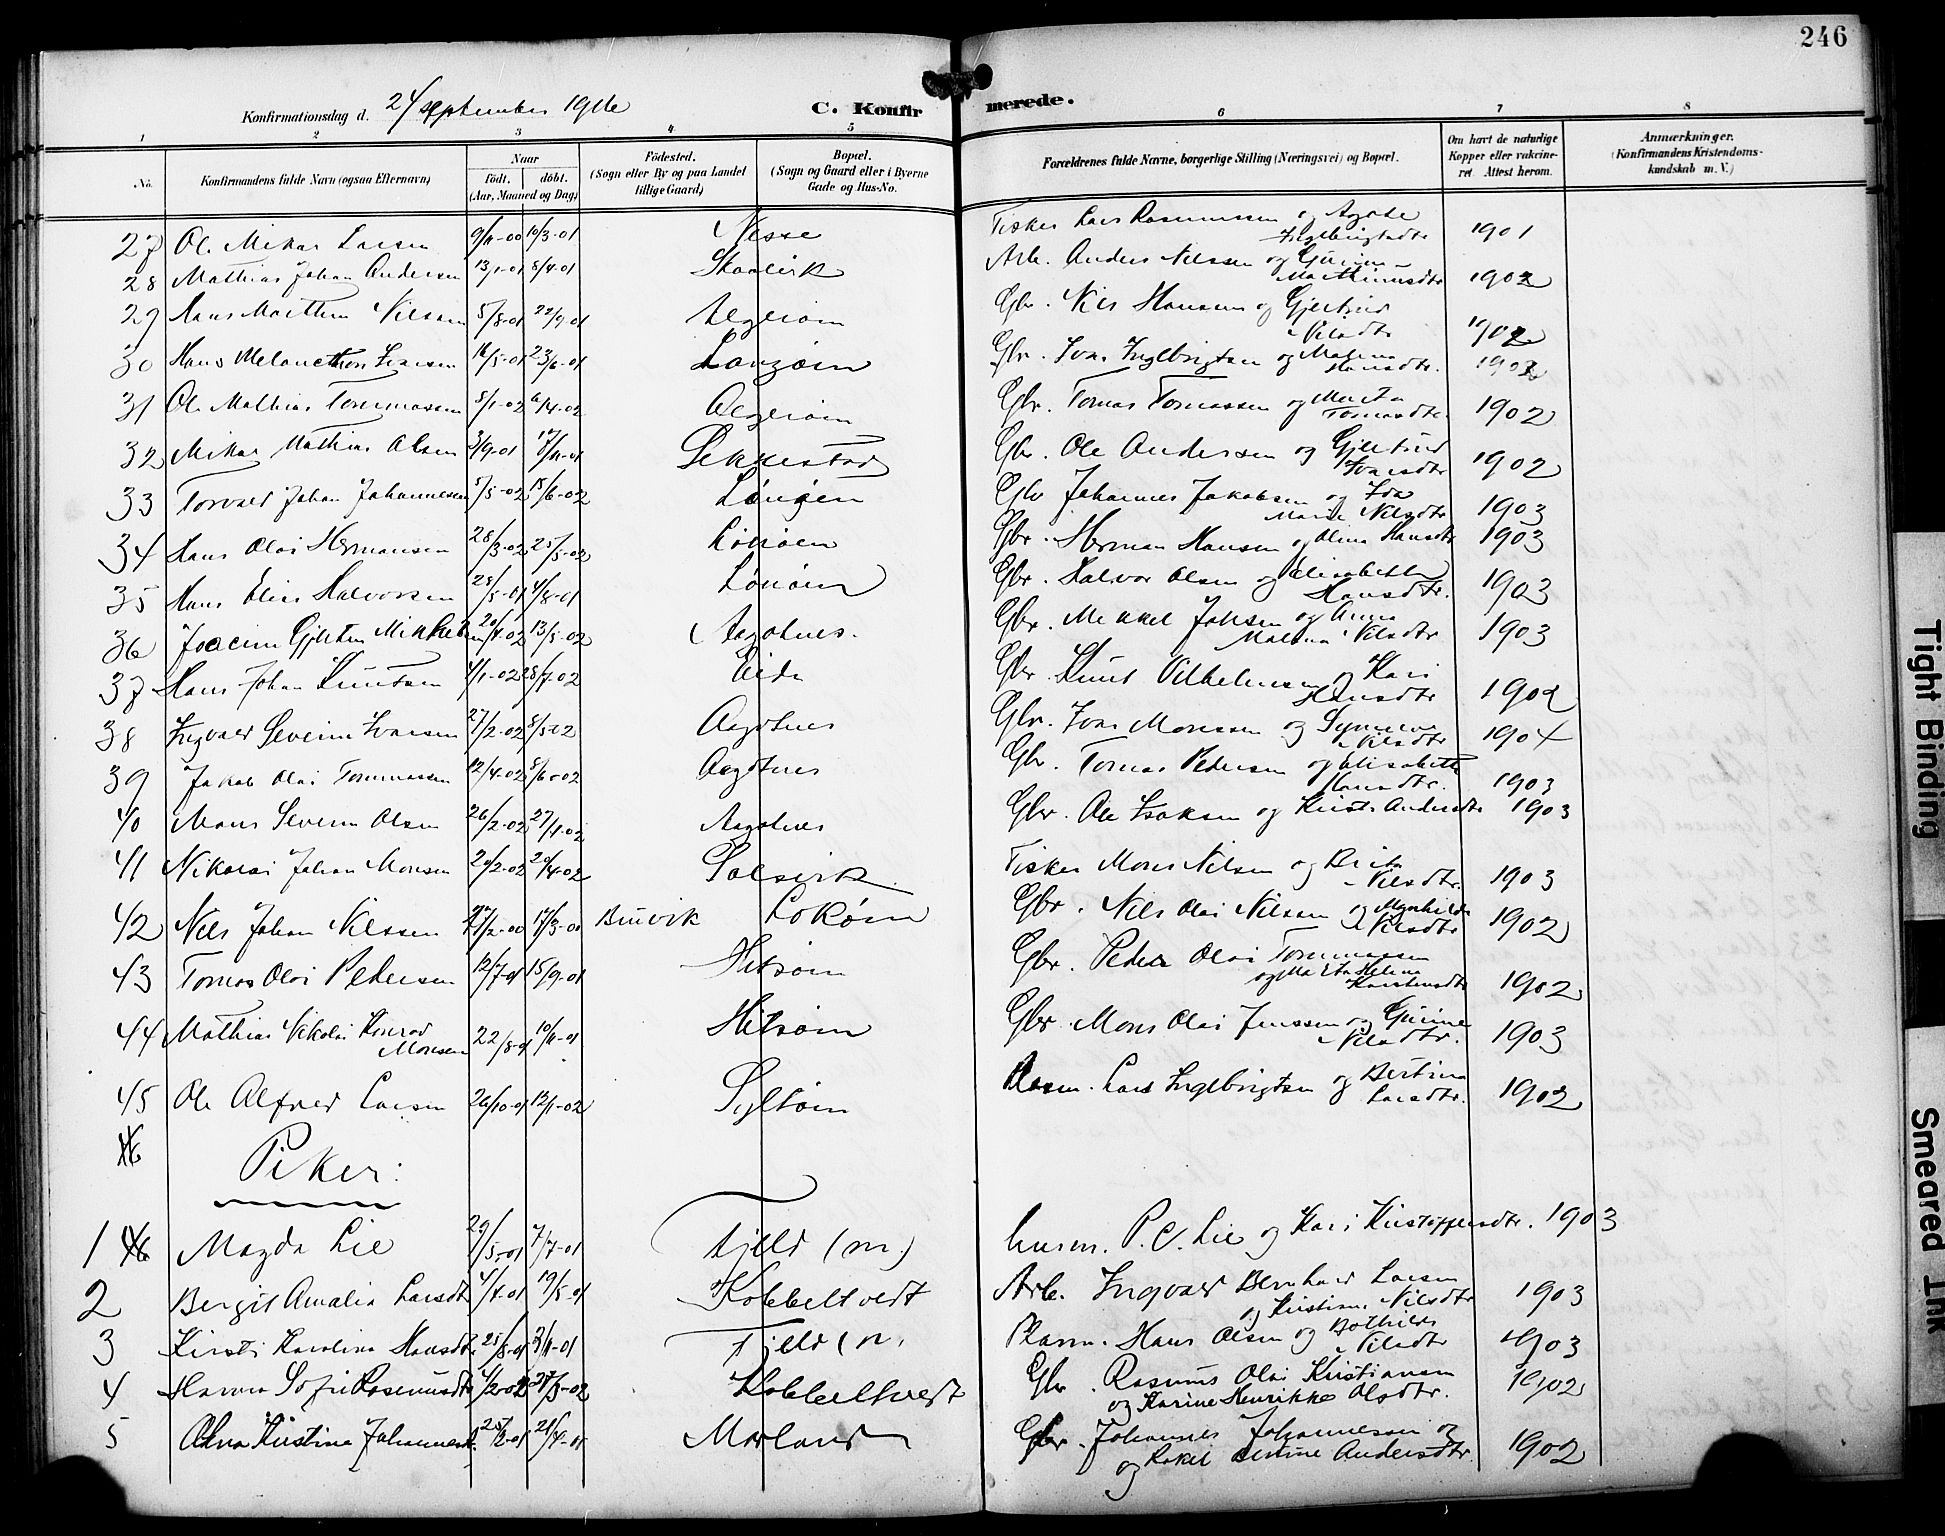 246
Konfirmationsdag d. 24 september 1916
C. Konfirmerede.
1 2 3 4 5 6 7 8
No.
Konfirmandens fulde Navn (ogsaa Efternavn)
Naar
født. døbt.
(Aar, Maaned og Dag)
Fødested.
(Sogn eller By og paa Landet
tillige Gaard)
Bopæl.
(Sogn og Gaard eller i Byerne
Gade og Hus-No.
Forældrenes fulde Navne, borgerlige Stilling (Næringsvei) og Bopæl.
Om havt de naturlige
Kopper eller vakcine-
ret. Attest herom.
Anmærkninger.
(Konfirmandens Kristendoms-
kundskab m. V.)
27 Ole Mikal Larsen 10/3-01 Nesse Fisker Lars Rasmussen og Agate Ingebrigtsdtr 1901
28 Mathias Johan Andersen 13/1-01 8/4-01 Skaalvik Arb. Anders Nilssen og Gurine Marthinusdtr 1902
29 Hans Marthin Nilssen 5/8-01 22/9-01 Algerøen Gbr. Nils Hansen og Gjertrud Nilsdtr 1902
30 Hans Melancthon Ivarsen 16/5-01 23/6-01 Langøen Gbr. Ivar Ingebrigtsen og Malena Hansdtr. 1902
31 Ole Mathias Tommassen 5/1-02 6/4-02 Algerøen Gbr. Tomas Tomassen og Marta Tomasdtr 1902
32 Mikal Mathias Olsen 3/9-01 17/11-01 Sekkestad Gbr. Ole Andersen og Gjertrud Ivarsdtr 1902
33 Torvald Johan Johannesen 5/5-02 15/6-02 Lønøen Gbr Johannes Jakobsen og Ida Marie Nilsdtr 1903
34 Hans Olai Hermansen 28/3-02 25/5-02 Lønøen Gbr. Herman Hansen og Olina Hansdtr 1903
35 Hans Elias Halvorsen 4/8-01 Lønøen Gbr. Halvor Olsen og Elisabetta Hansdtr. 1903
36 Joacim Gjertin Mikkelsen 20/4-02 13/5-02 Aagotnes. Gbr. Mikkel Johsen og Anna Malena Nilsdtr 1903
37 Hans Johan Knutsen 4/1-02 Eide Gbr Knut Vilhelmsen og Kari Hansdtr 1902
38 Ingvald Severin Ivarsen 27/2-02 8/5-02 Aagotnes Gbr. Ivar Monssen og Synneve Nilsdtr 1904
39 Jakob Olai Tommassen 12/4-02 8/6-02 Aagotnes Gbr. Tomas Pedersen og Elisabeth Hansdtr. 1903
40 Mons Severin Olsen 26/2-02 Aagotnes Gbr. Ole Isaksen og Kirsti Andersdtr 1903
41 Nikolai Johan Monsen 20/2-02 20/4-02 Solsvik Fisker Mons Nilsen og Brita Nilsdtr. 1903
42 Nils Johan Nilssen 17/3-00 Bruvik Lokøen Gbr. Nils Olai Nilsen og Magnhilde Nilsdtr 1902
43 Tomas Olai Pedersen 12/7-01 15/9-01 Hitsøen Gbr. Peder Olai Tommassen og Marta Helena Karstensdtr 1902
44 Mathias Nikolai Konrad Monsen 22/8-01 10/11-01 Hitsøen Gbr. Mons Olai Jenssen og Gurine Nilsdtr. 1903
45 Ole Alfred Larsen 26/10-01 12/1-02 Syltøen Lars Ingebrigtsen og Bertina Larsdtr. 1902
Piker:
1 Magda Lie 29/5-01 7/7-01 Fjeld (m.) P. C. Lie og Kari Kristoffersdtr. 1903
2 Bergit Amalia Larsdtr 4/4-01 19/5-01 Kobbeltvedt Arb. Ingvald Bernhard Larsen og Kristine Nilsdtr 1903
3 Kirsti Karolina Hansdtr 25/8-01 3/11-01 Fjeld (n. Plasm. Hans Olsen og Bothilde Nilsdtr 1903
4 Hanna Sofie Rasmusdtr 4/2-02 Kobbeltvedt Gbr. Rasmus Olai Kristiansen og Karine Henrikke Olsdtr. 1902
5 Kristina Johannesdtr. 21/4-01 Morland Gbr. Johannes Johannessen og og Rakel Andersdtr. 1902
Tight Binding
Smeared Ink